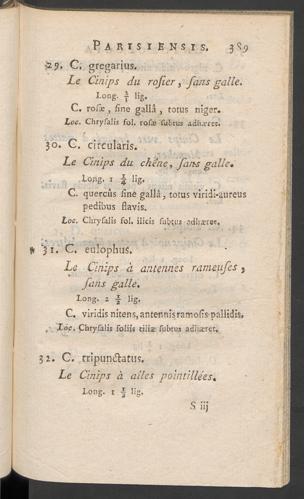 PARISIENSIS. 389
29. C. gregarius.
Le Cinips du rosier, sans galle.
Long. lig.
C. rosæ, sine gallâ, totus niger.
Loc. Chrysalis fol. rosæ subtus adhæret.
30. C. circularis.
Le Cinips du chêne, sans galle.
Long. 1 lig.
C. quercûs sine gallâ, totus viridi-aureus
pedibus flavis.
Loc. Chrysalis fol. ilicis subtus adhæret.
* 31. C. eulophus.
Le Cinips à antennes rameuses,
sans galle.
Long. 2 lig.
C. viridis nitens, antennis ramosis pallidis.
Loc. Chrysalis foliis tiliæ subtus adhæret.
32. C. tripunctatus.
Le Cinips à ailes pointillées.
Long. 1 lig.
S iij